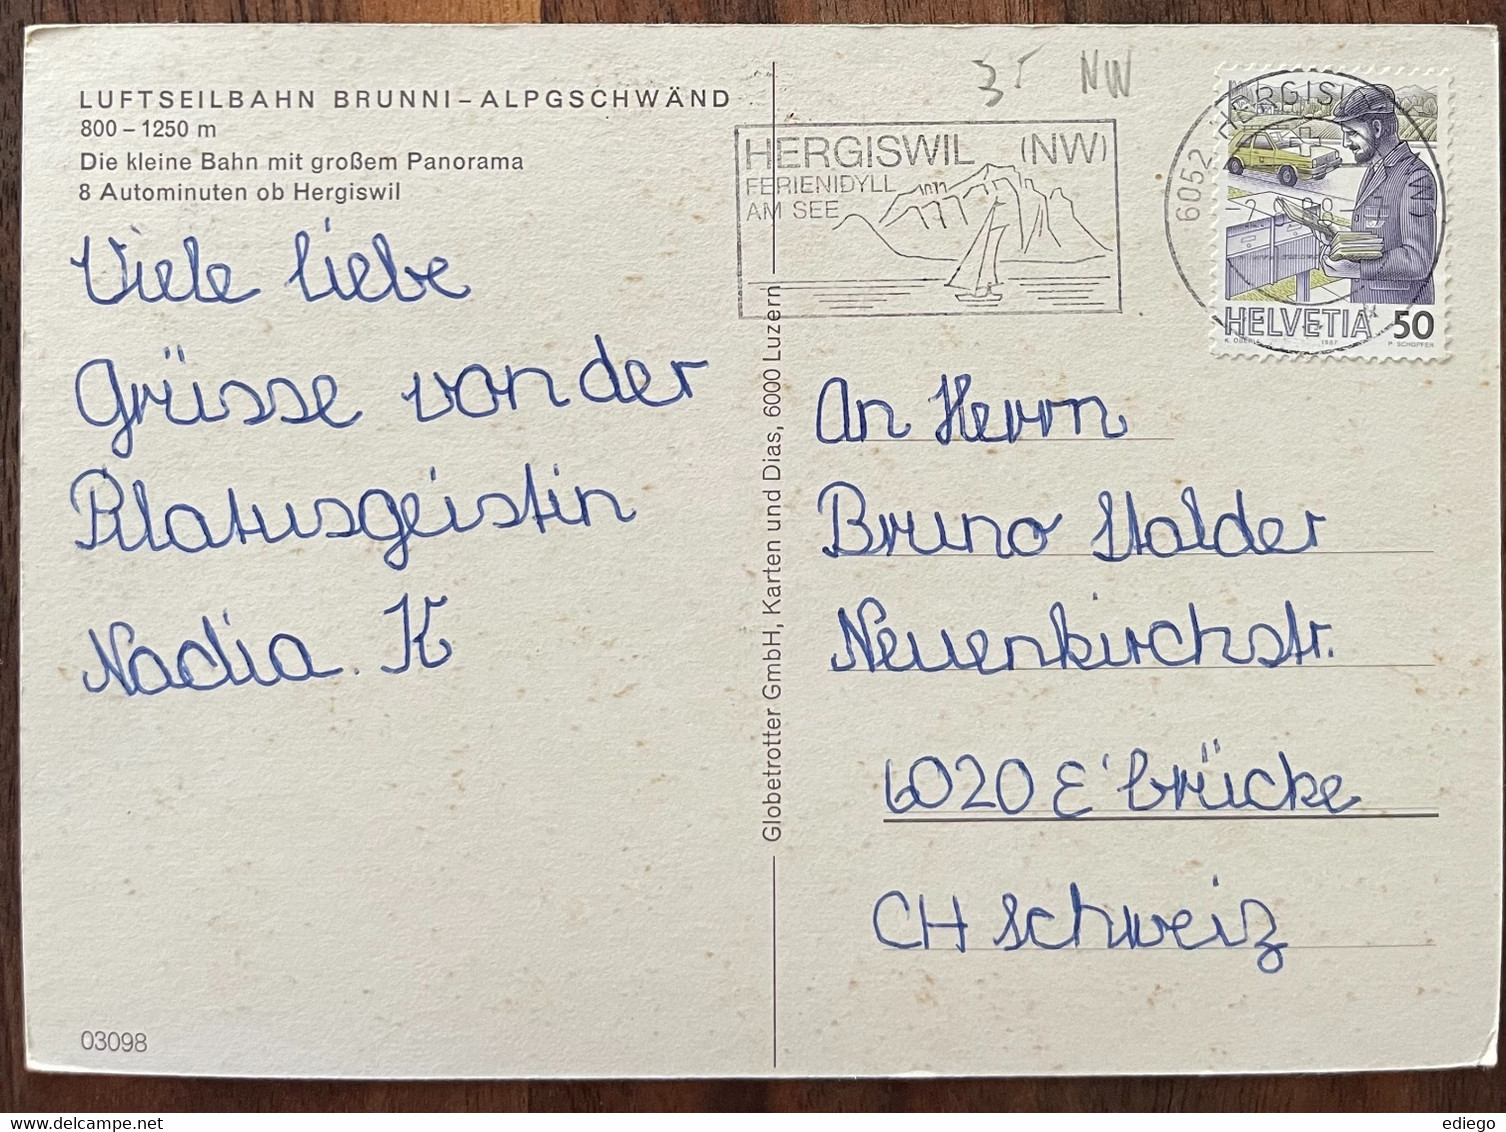 LUFTSEILBAHN BRUNNI – ALPGSCHWÄND
800 – 1250 m
Die kleine Bahn mit großem Panorama
8 Autominuten ob Hergiswil
Viele liebe
Grüsse von der
Pilatusgeistin
Nadia. K
03098
Globetrotter GmbH, Karten und Dias, 6000 Luzern
35 NW
HERGISWIL (NW)
FERIENIDYLL
AM SEE
6052 HERGISWIL
HELVETIA 50
K. OBERLI 1987 P. SCHOPFER
An Herrn
Bruno Stalder
Neuenkirchstr.
6020 E'brücke
CH Schweiz
ediego